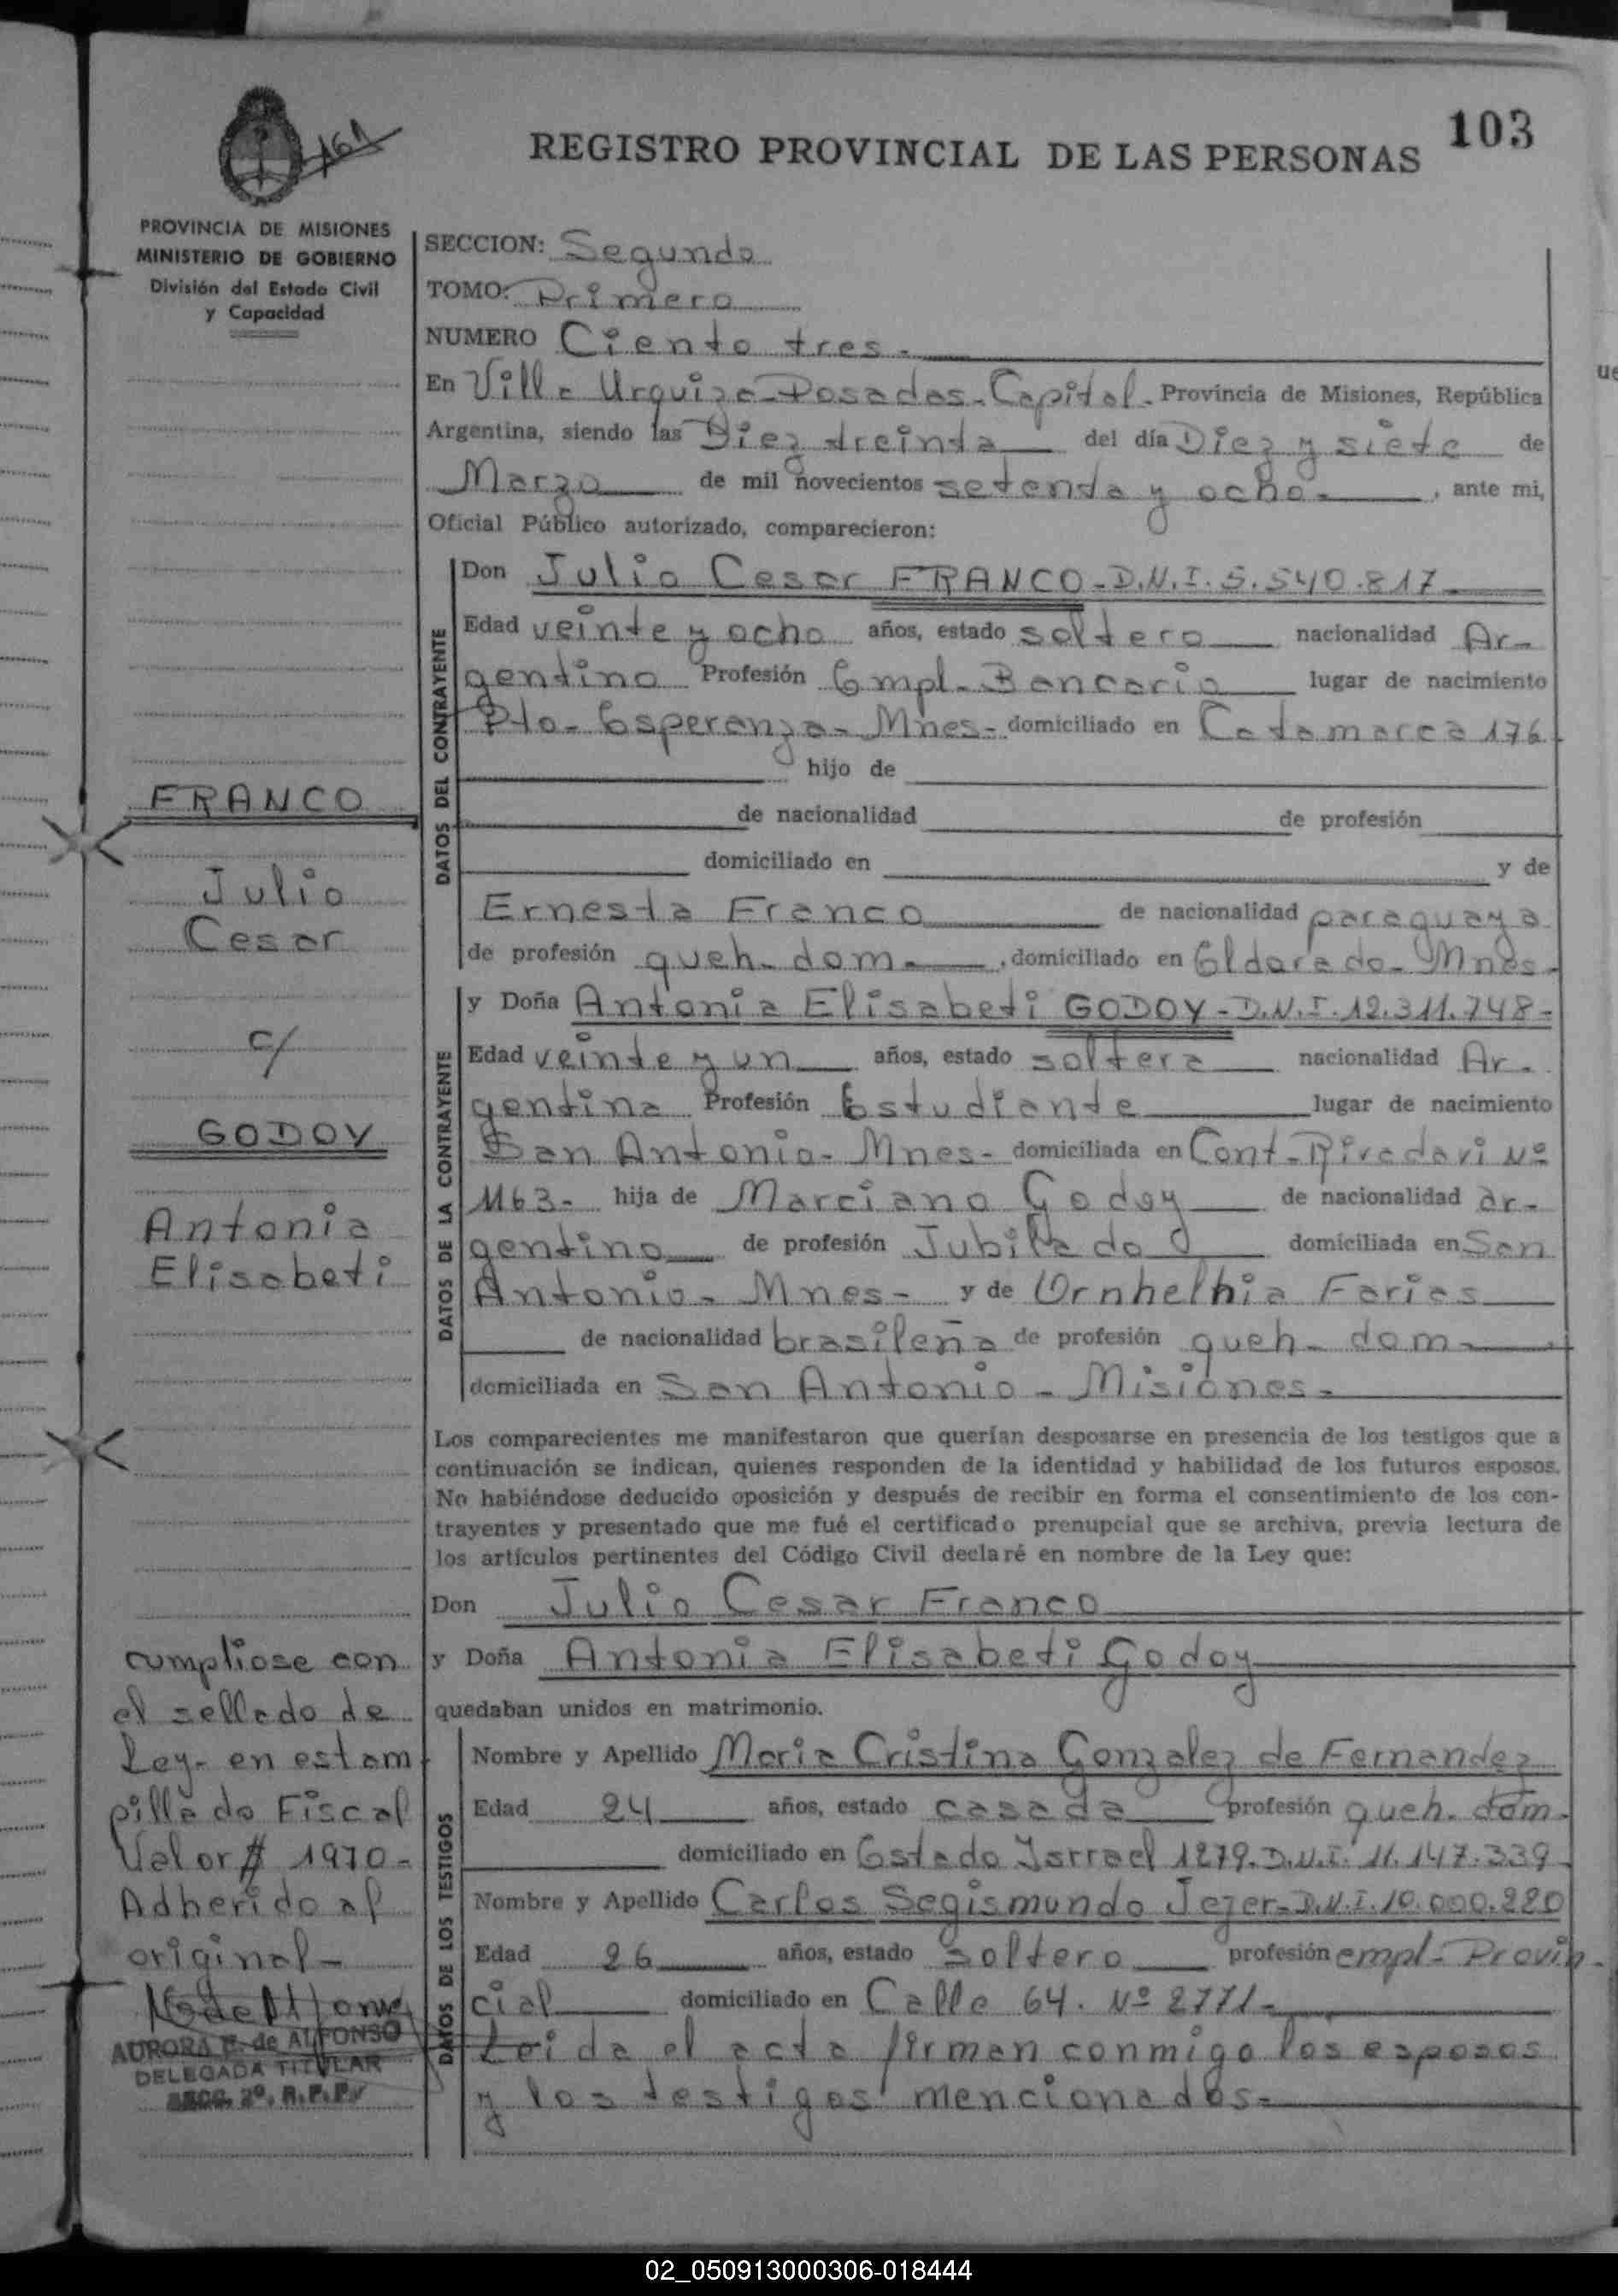 103
REGISTRO PROVINCIAL DE LAS PERSONAS
161
PROVINCIA DE MISIONES
MINISTERIO DE GOBIERNO
División del Estado Civil
y Capacidad
SECCION: Segunda
TOMO: Primero
NUMERO Ciento tres.
En Villa Urquiza-Posadas-Capital- Provincia de Misiones, República
Argentina, siendo las Diez treinta del día Diez y siete de
Marzo de mil novecientos setenta y ocho- , ante mi,
Oficial Público autorizado, comparecieron:
DATOS DEL CONTRAYENTE
Don Julio Cesar FRANCO-D.N.I.5.540.817
Edad veinte y ocho años, estado soltero nacionalidad Ar-
gentino Profesión Empl-Bancario lugar de nacimiento
Pto-Esperanza-Mnes- domiciliado en Catamarca 176
hijo de
de nacionalidad de profesión
domiciliado en y de
Ernesta Franco de nacionalidad paraguaya
de profesión queh-dom- , domiciliado en Eldorado-Mnes-
DATOS DE LA CONTRAYENTE
y Doña Antonia Elisabeti GODOY-D.N.I.12.311.748-
Edad veinte y un años, estado soltera nacionalidad Ar-
gentina Profesión Estudiante lugar de nacimiento
San Antonio-Mnes- domiciliada en Cont-Rivadavi Nº
1163- hija de Marciano Godoy de nacionalidad ar-
gentino de profesión Jubilado domiciliada en San
Antonio-Mnes- y de Ornhelhia Farias
de nacionalidad brasileña de profesión queh-dom-
domiciliada en San Antonio-Misiones-
Los comparecientes me manifestaron que querían desposarse en presencia de los testigos que a
continuación se indican, quienes responden de la identidad y habilidad de los futuros esposos.
No habiéndose deducido oposición y después de recibir en forma el consentimiento de los con-
trayentes y presentado que me fué el certificado prenupcial que se archiva, previa lectura de
los artículos pertinentes del Código Civil declaré en nombre de la Ley que:
Don Julio Cesar Franco
y Doña Antonia Elisabeti Godoy
quedaban unidos en matrimonio.
DATOS DE LOS TESTIGOS
Nombre y Apellido Maria Cristina Gonzalez de Fernandez
Edad 24 años, estado casada profesión queh-dom-
domiciliado en Estado Isrrael 1279.D.N.I.11.147.339
Nombre y Apellido Carlos Segismundo Jezer-D.N.I.10.000.220
Edad 26 años, estado soltero profesión empl-Provin-
cial domiciliado en Calle 64. Nº 2771-
Leida el acta firman conmigo los esposos
y los testigos mencionados-
FRANCO
Julio
Cesar
c/
GODOY
Antonia
Elisabeti
cumpliose con
el sellado de
Ley- en estam
pillado Fiscal
Valor $ 1970-
Adherido al
original-
AURORA E. de ALFONSO
DELEGADA TITULAR
SECC. 2º. R.P.P.
02_050913000306-018444